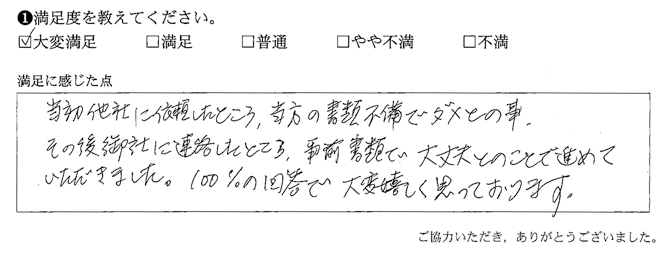 ❶満足度を教えてください。
☑大変満足 □満足 □普通 □やや不満 □不満
満足に感じた点
当初他社に依頼したところ、当方の書類不備でダメとの事、
その後御社に連絡したところ、事前書類で大丈夫とのことで進めて
いただきました。100%の回答で大変嬉しく思っております。
ご協力いただき，ありがとうございました。